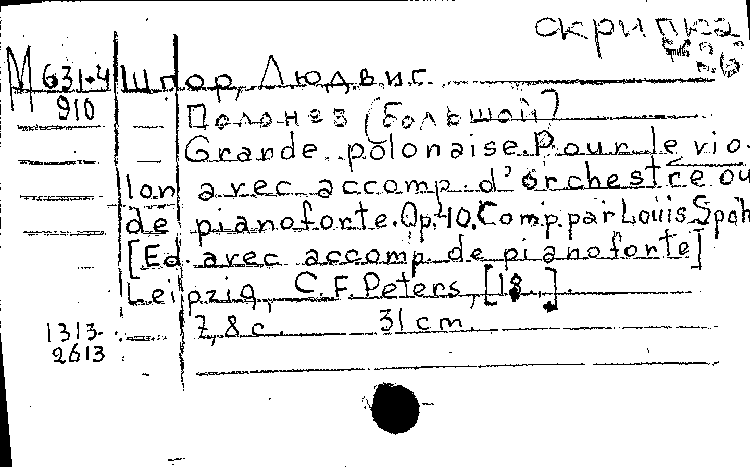 скрипка
М 631-4 Шпор, Людвиг.
910 Полонез (Большой)
Grande polonaise. Pour le vio-
lon avec accomp. d'orchestre ou
de pianoforte. Op. 40. Comp. par Louis Spohr
[Ed. avec accomp. de pianoforte]
Leipzig, C. F. Peters, [18..].
7, 8 c. 31 cm.
1313-
2613